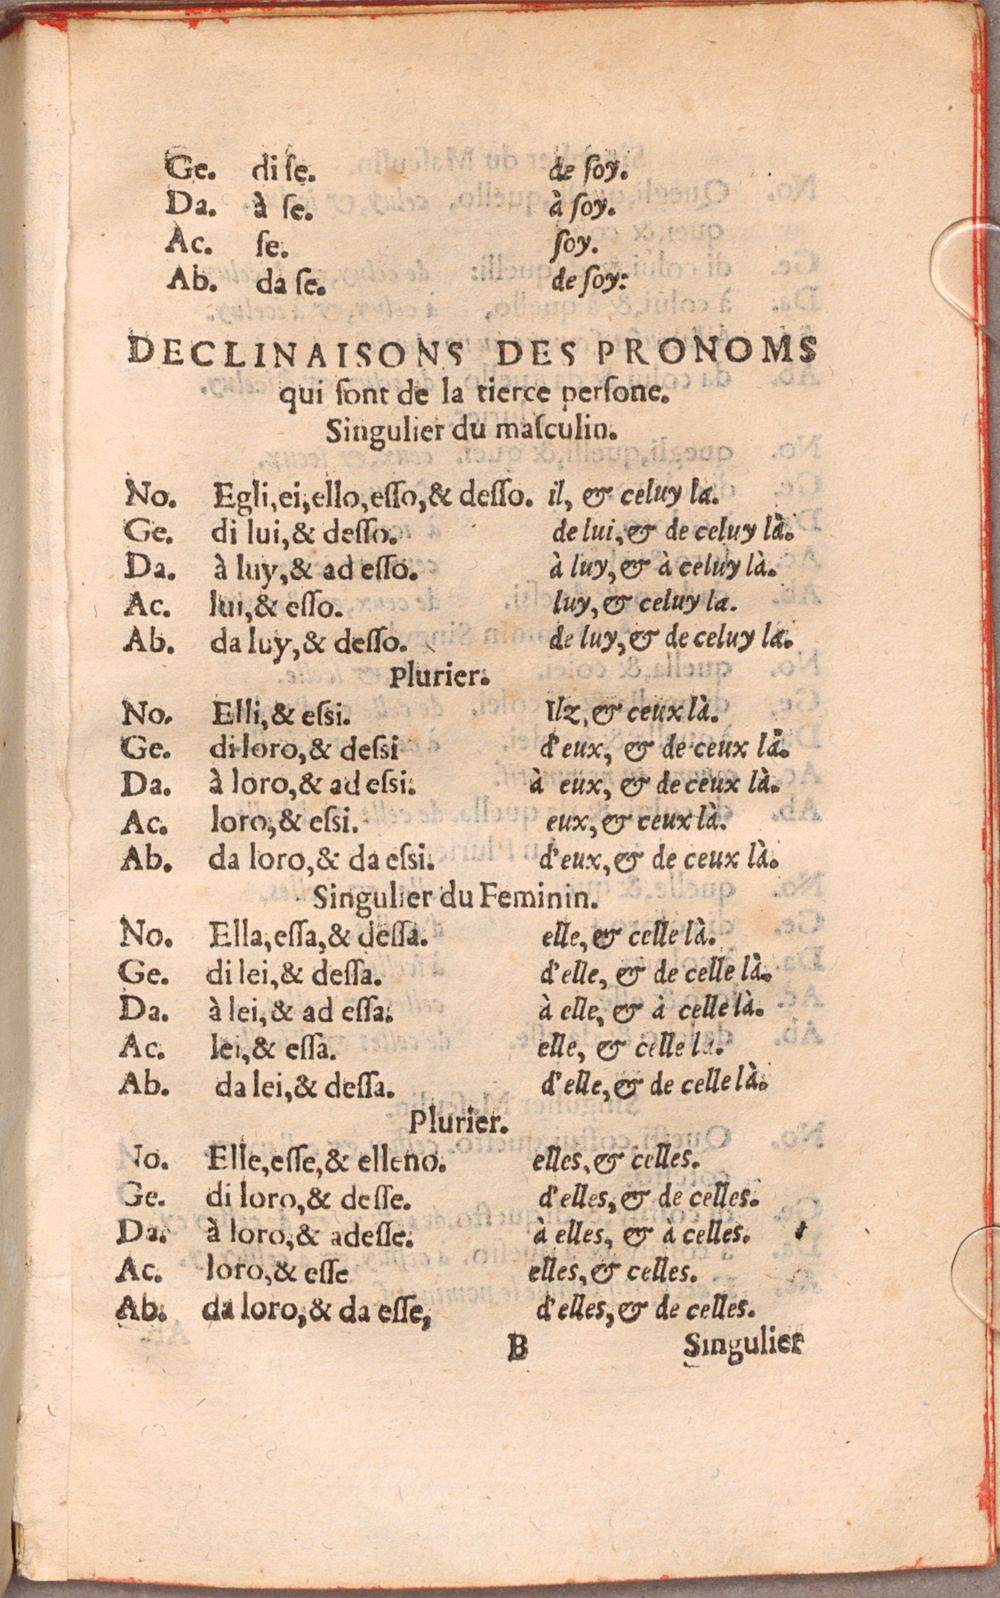 Ge. di ſe. de ſoy.
Da. à ſe. à ſoy.
Ac. ſe. ſoy.
Ab. da ſe. de ſoy:
DECLINAISONS DES PRONOMS
qui ſont de la tierce perſone.
Singulier du maſculin.
No. Egli,ei,ello,eſſo,& deſſo. il, & celuy la.
Ge. di lui,& deſſo. de lui,& de celuy là.
Da. à luy,& ad eſſo. à luy,& à celuy là.
Ac. lui,& eſſo. luy,& celuy la.
Ab. da luy,& deſſo. de luy,& de celuy la.
Plurier.
No. Elli,& eſsi. Ilz,& ceux là.
Ge. di loro,& deſsi d'eux, & de ceux là.
Da. à loro,& ad eſsi. à eux, & de ceux là.
Ac. loro,& eſsi. eux,& ceux là.
Ab. da loro,& da eſsi. d'eux,& de ceux là.
Singulier du Feminin.
No. Ella,eſſa,& deſſa. elle,& celle là.
Ge. di lei,& deſſa. d'elle, & de celle là.
Da. à lei,& ad eſſa. à elle, & à celle là.
Ac. lei,& eſſa. elle, & celle la.
Ab. da lei,& deſſa. d'elle,& de celle là.
Plurier.
No. Elle,eſſe,& elleno. elles,& celles.
Ge. di loro,& deſſe. d'elles,& de celles.
Da. à loro,& adeſſe. à elles, & à celles.
Ac. loro,& eſſe elles,& celles.
Ab. da loro,& da eſſe, d'elles,& de celles.
B Singulier